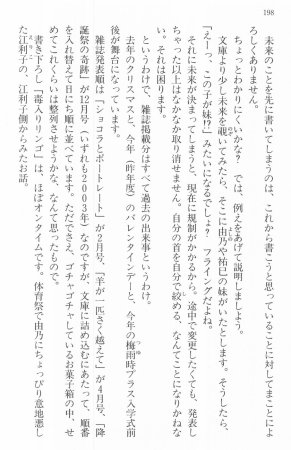 198
未来のことを先に書いてしまうのは、これから書こうと思っていることに対してまことによ
ろしくありません。
ちょっとわかりにくいかな？　では、例えをあげて説明しましよう。
文庫より少し未来を覗いてみたら、そこに由乃や祐巳の妹がいたとします。そうしたら、
「えーっ、この子が妹!?」みたいになるでしょ？　フライングだよね。
それに未来が決まってしまうと、現在に規制がかかるから。途中で変更したくても、発表し
ちゃった以上はなかなか取り消せません。自分の首を自分で絞める、なんてことになりかねな
い。それは困ります。
というわけで、雑誌掲載分はすべて過去の出来事というわけ。
去年のクリスマスと、今年（昨年度）のバレンタインデーと、今年の梅雨時プラス入学式前
後が舞台になっています。
雑誌発表順は「ショコラとポートレート」が２月号、「羊が一匹さく越えて」が４月号、「降
誕祭の奇跡」が12月号（いずれも２００３年）なのですが、文庫に詰め込むにあたって、順番
を入れ替えて日にち順に並べています。ただでさえ、ゴチャゴチャしているお菓子箱の中、せ
めてこれくらいは整列させようかな、なんて思ったもので。
書き下ろし「毒入りリンゴ」は、ほぼオンタイムです。体育祭で由乃にちょっぴり意地悪し
た江利子の、江利子側からみたお話。